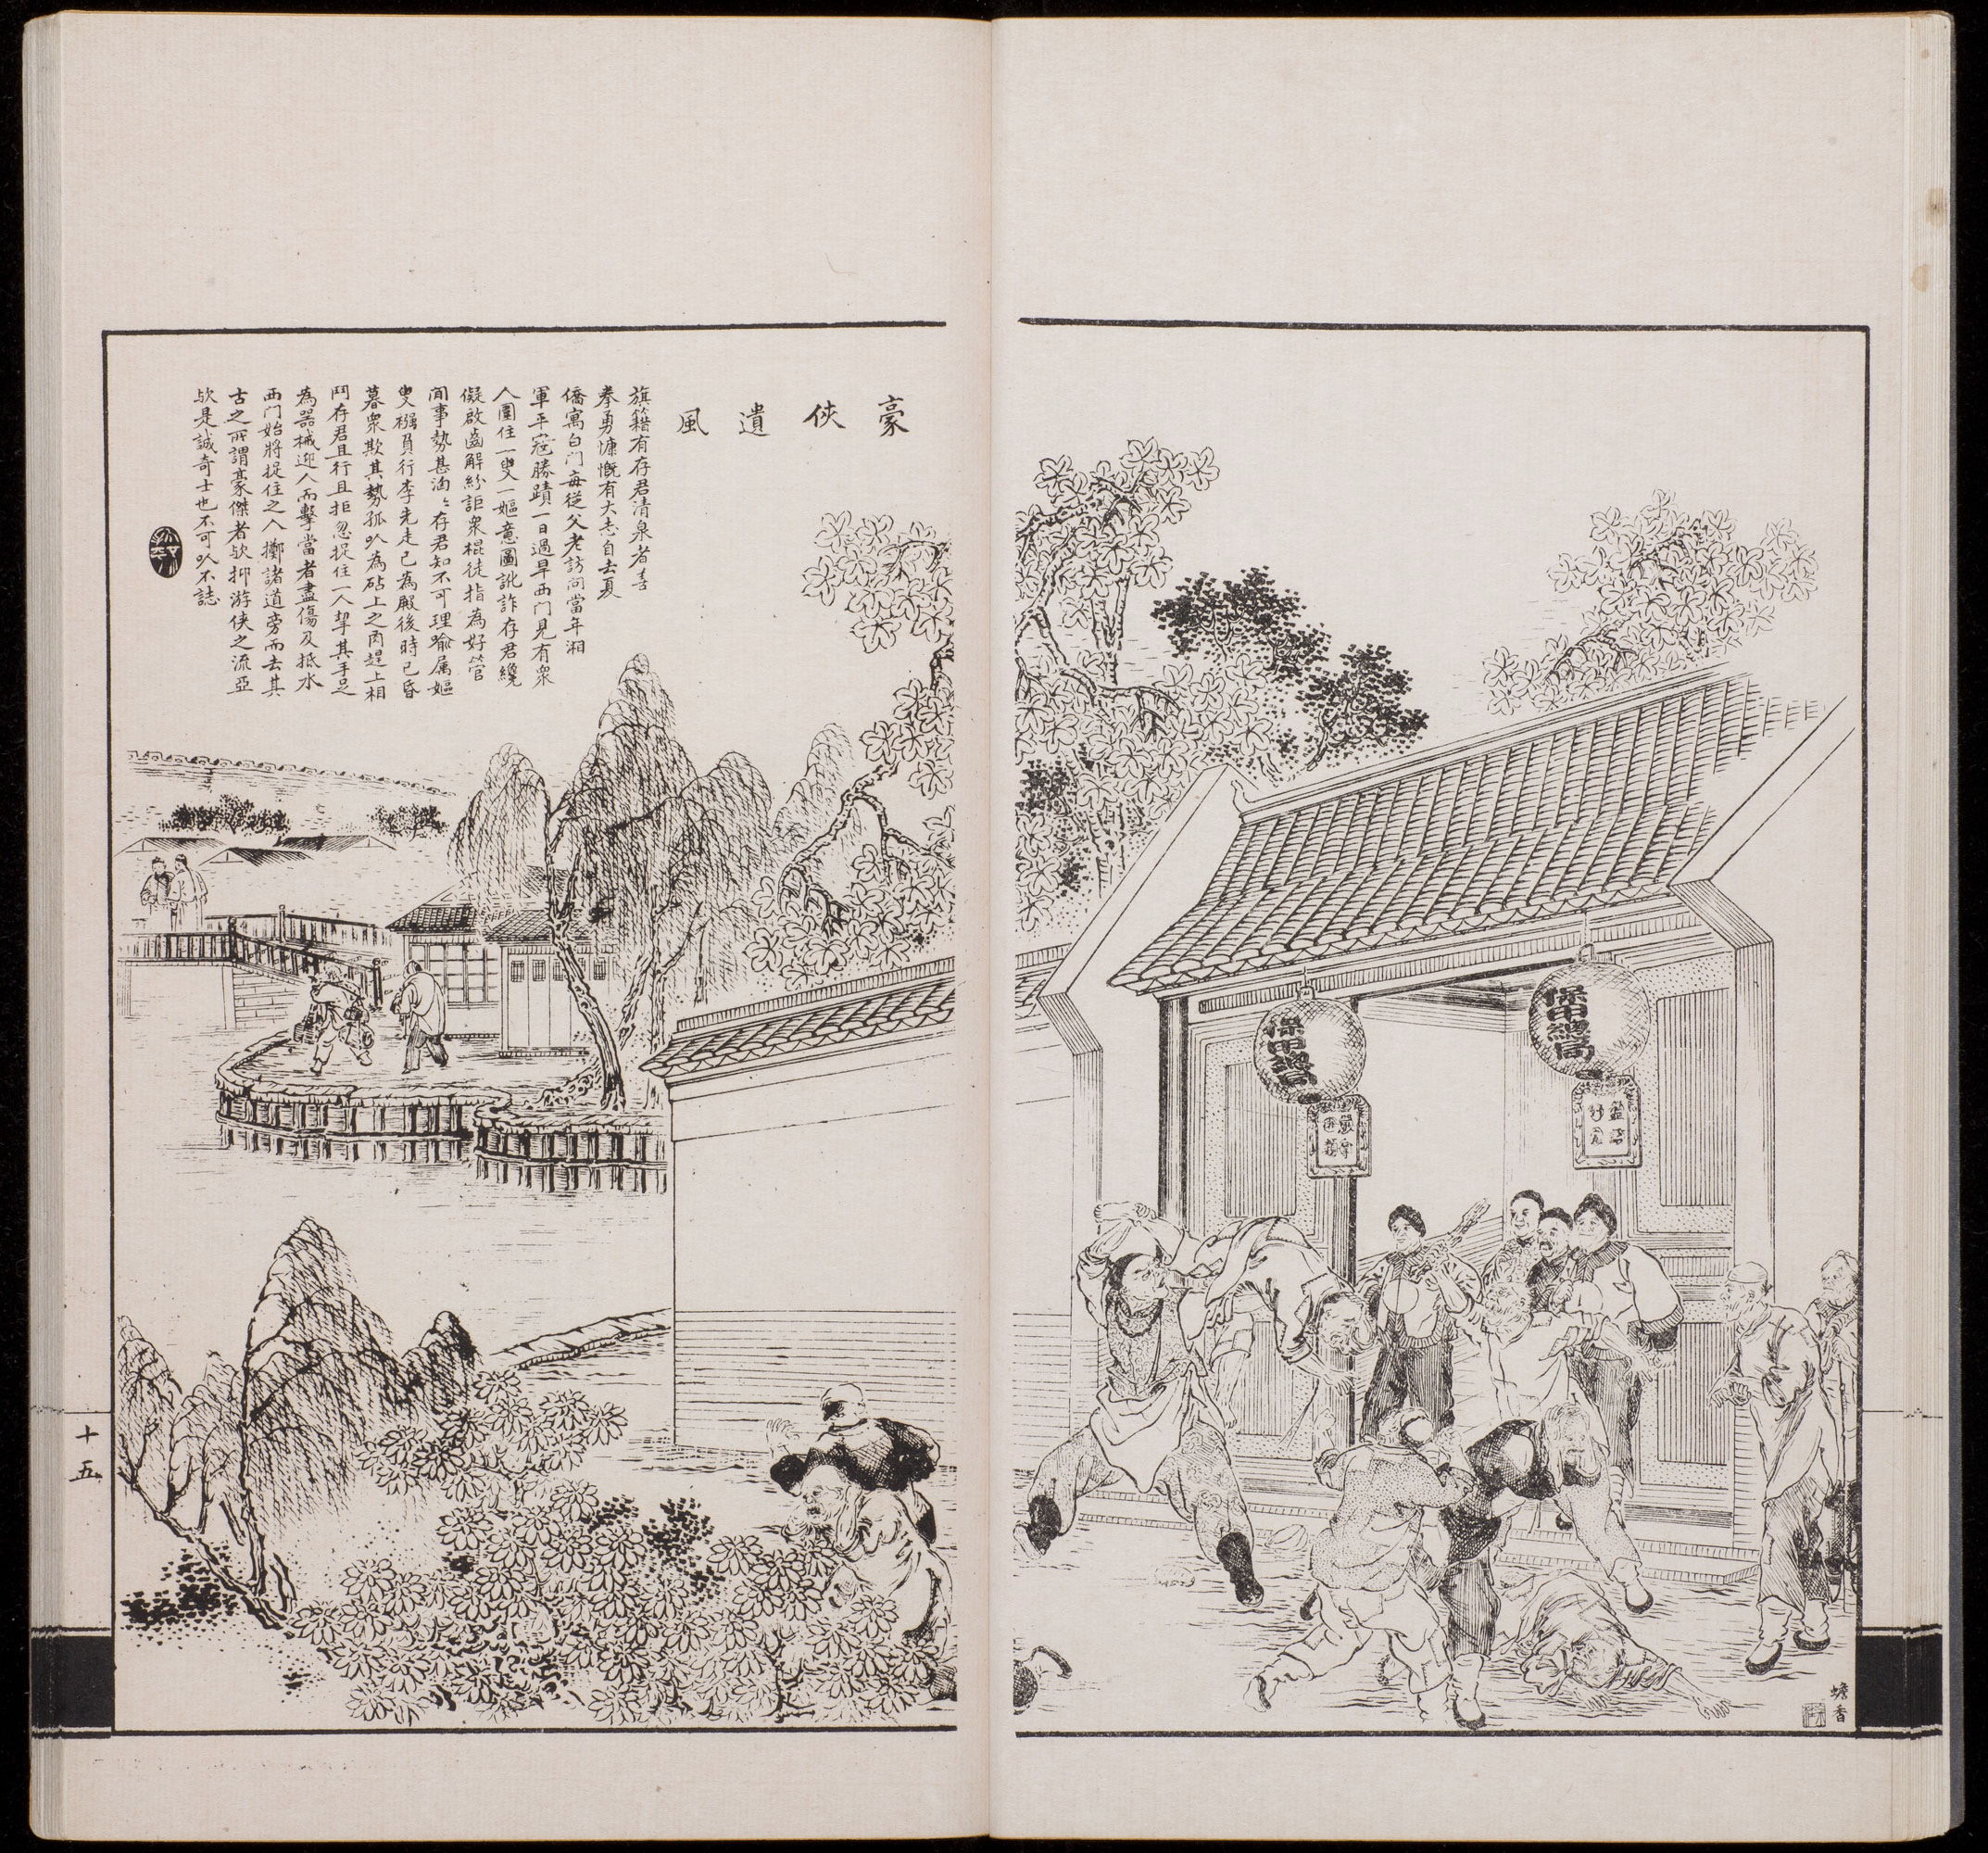 豪俠遺風
旗籍有存君清泉者喜
拳勇慷慨有大志自去夏
僑寓白门每從父老訪问當年湘
軍平寇勝蹟一日過旱西门見有衆
人圍住一叟一嫗意圖訛詐存君纔
儗啟齒解紛詎衆棍徒指為好管
閒事勢甚洶〻存君知不可理喻属嫗
叟襁負行李先走己為殿後時已昏
暮衆欺其勢孤㕥為砧上之肉趕上相
鬥存君且行且拒忽捉住一人挈其手足
為器械迎人而擊當者盡傷及抵水
西门始將捉住之人擲諸道旁而去其
古之所謂豪傑者欤抑游俠之流亞
欤是誠奇士也不可㕥不誌
保甲總局
保甲總局
蟾香
十五